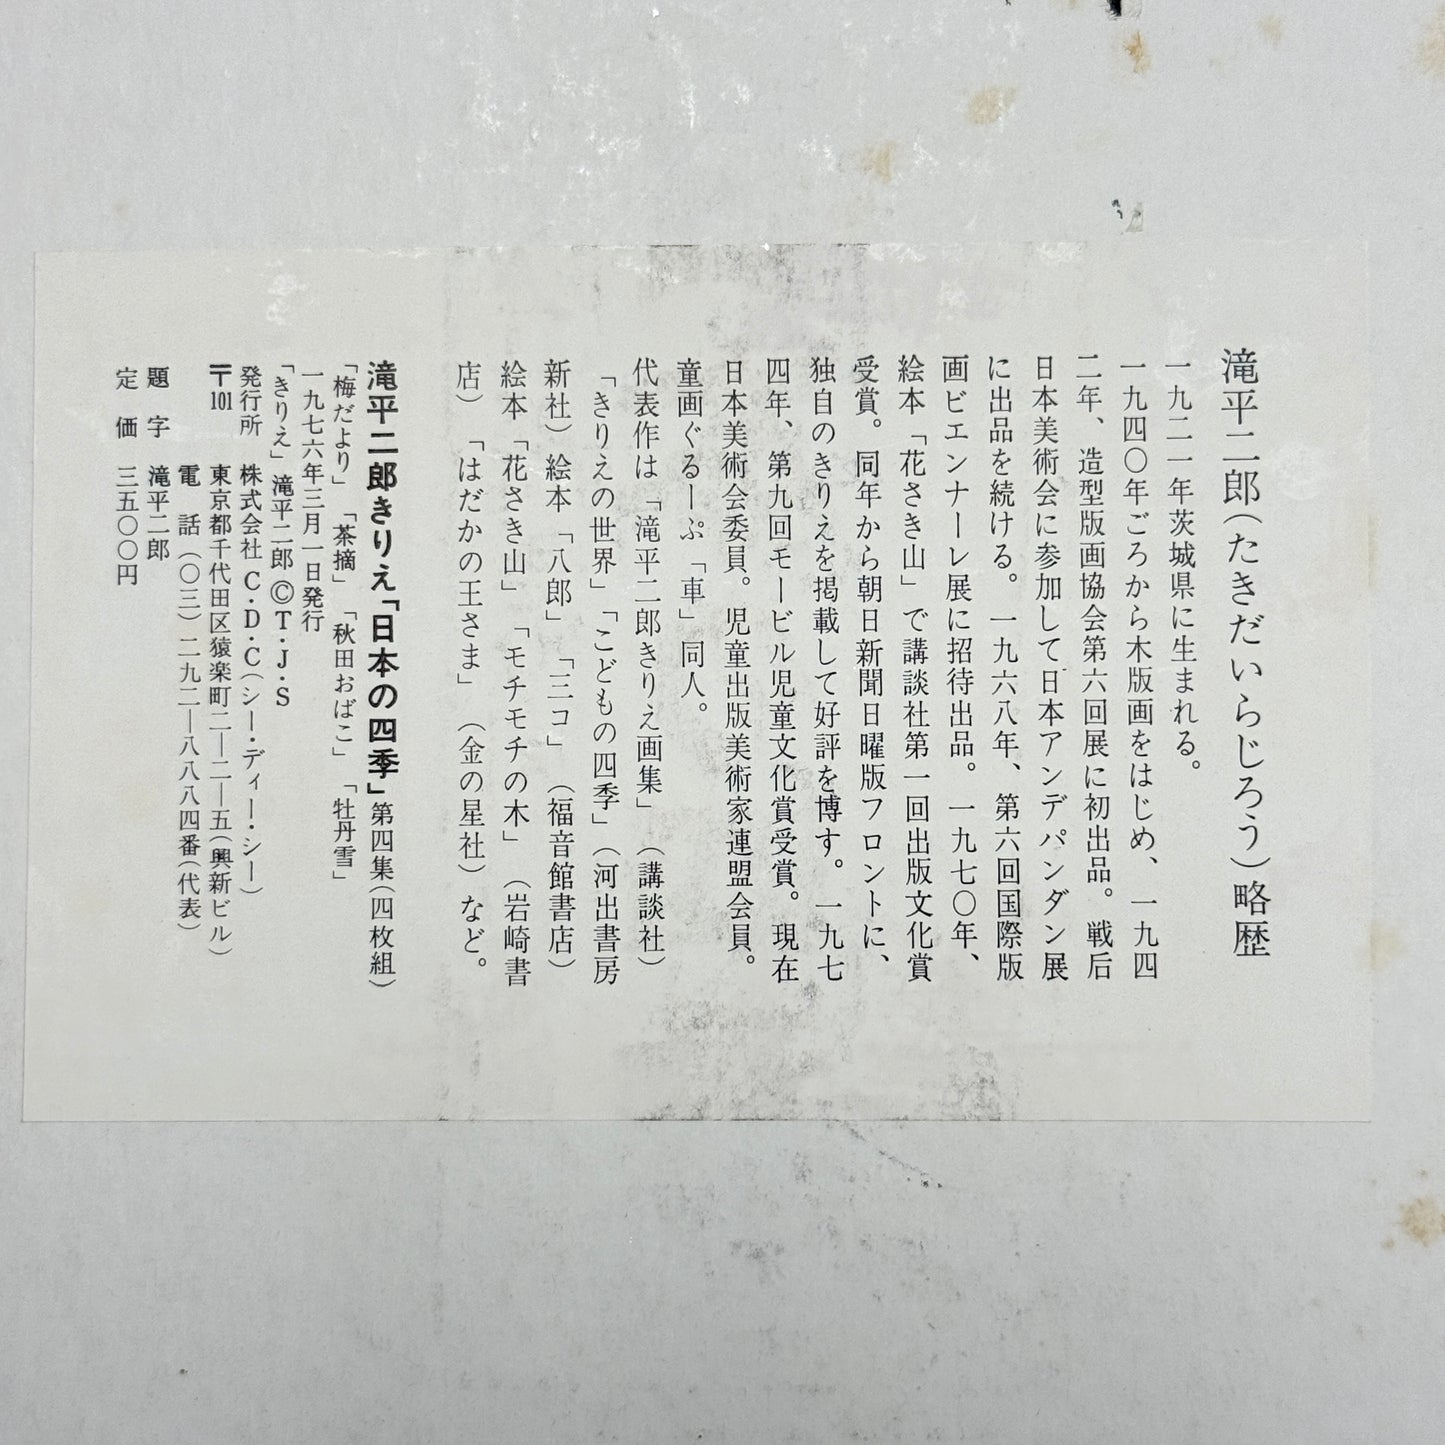 滝平二郎(たきだいらじろう)略歴
一九二一年茨城県に生まれる。
一九四〇年ごろから木版画をはじめ、一九四
二年、造型版画協会第六回展に初出品。戦后
日本美術会に参加して日本アンデパンダン展
に出品を続ける。一九六八年、第六回国際版
画ビエンナーレ展に招待出品。一九七〇年、
絵本「花さき山」で講談社第一回出版文化賞
受賞。同年から朝日新聞日曜版フロントに、
独自のきりえを掲載して好評を博す。一九七
四年、第九回モービル児童文化賞受賞。現在
日本美術会委員。児童出版美術家連盟会員。
童画ぐるーぷ「車」同人。
代表作は「滝平二郎きりえ画集」(講談社)
「きりえの世界」「こどもの四季」(河出書房
新社)絵本「八郎」「三コ」(福音館書店)
絵本「花さき山」「モチモチの木」(岩崎書
店)「はだかの王さま」(金の星社)など。
滝平二郎きりえ「日本の四季」第四集(四枚組)
「梅だより」「茶摘」「秋田おばこ」「牡丹雪」
一九七六年三月一日発行
「きりえ」滝平二郎 ©T・J・S
発行所 株式会社 C・D・C(シー・ディー・シー)
〒101 東京都千代田区猿楽町二―二―五(興新ビル)
電話(〇三)二九二―八八八四番(代表)
題字 滝平二郎
定価 三五〇〇円